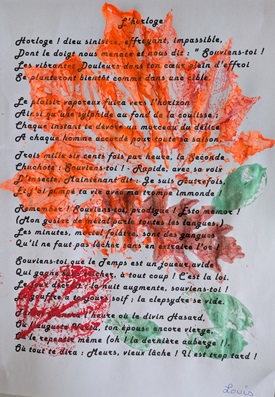 L'horloge
Horloge ! dieu sinistre, effrayant, impassible,
Dont le doigt nous menace et nous dit : " Souviens-toi !
Les vibrantes Douleurs dans ton cœur plein d'effroi
Se planteront bientôt comme dans une cible,
Le plaisir vaporeux fuira vers l'horizon
Ainsi qu'une sylphide au fond de la coulisse ;
Chaque instant te dévore un morceau du délice
A chaque homme accordé pour toute sa saison.
Trois mille six cents fois par heure, la Seconde
Chuchote : Souviens-toi ! - Rapide, avec sa voix
D'insecte, Maintenant dit : Je suis Autrefois,
Et j'ai pompé ta vie avec ma trompe immonde
Remember ! Souviens-toi, prodigue ! Esto memor !
(Mon gosier de métal parle toutes les langues.)
Les minutes, mortel folâtre, sont des gangues
Qu'il ne faut pas lâcher sans en extraire l'or
Souviens-toi que le Temps est un joueur avide
Qui gagne sans tricher, à tout coup ! C'est la loi.
Le jour décroît ; la nuit augmente, souviens-toi !
Le gouffre a toujours soif ; la clepsydre se vide.
l'heure où le divin Hasard,
Où l'auguste ton épouse encore vierge,
Où le repentir même (oh ! la dernière auberge !
Où tout te dira : Meurs, vieux lâche ! Il est trop tard !
Louis